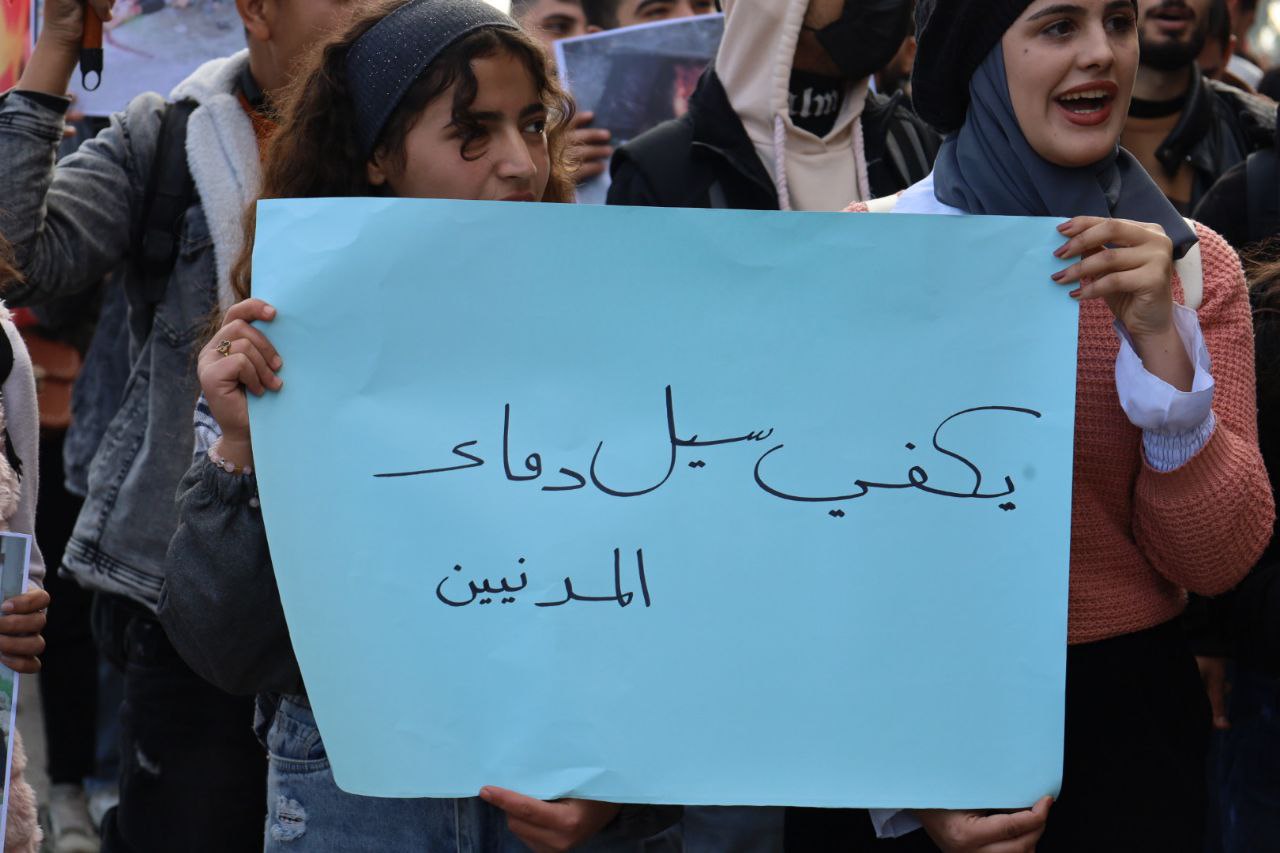 يكفي سيل دماء
المدنيين